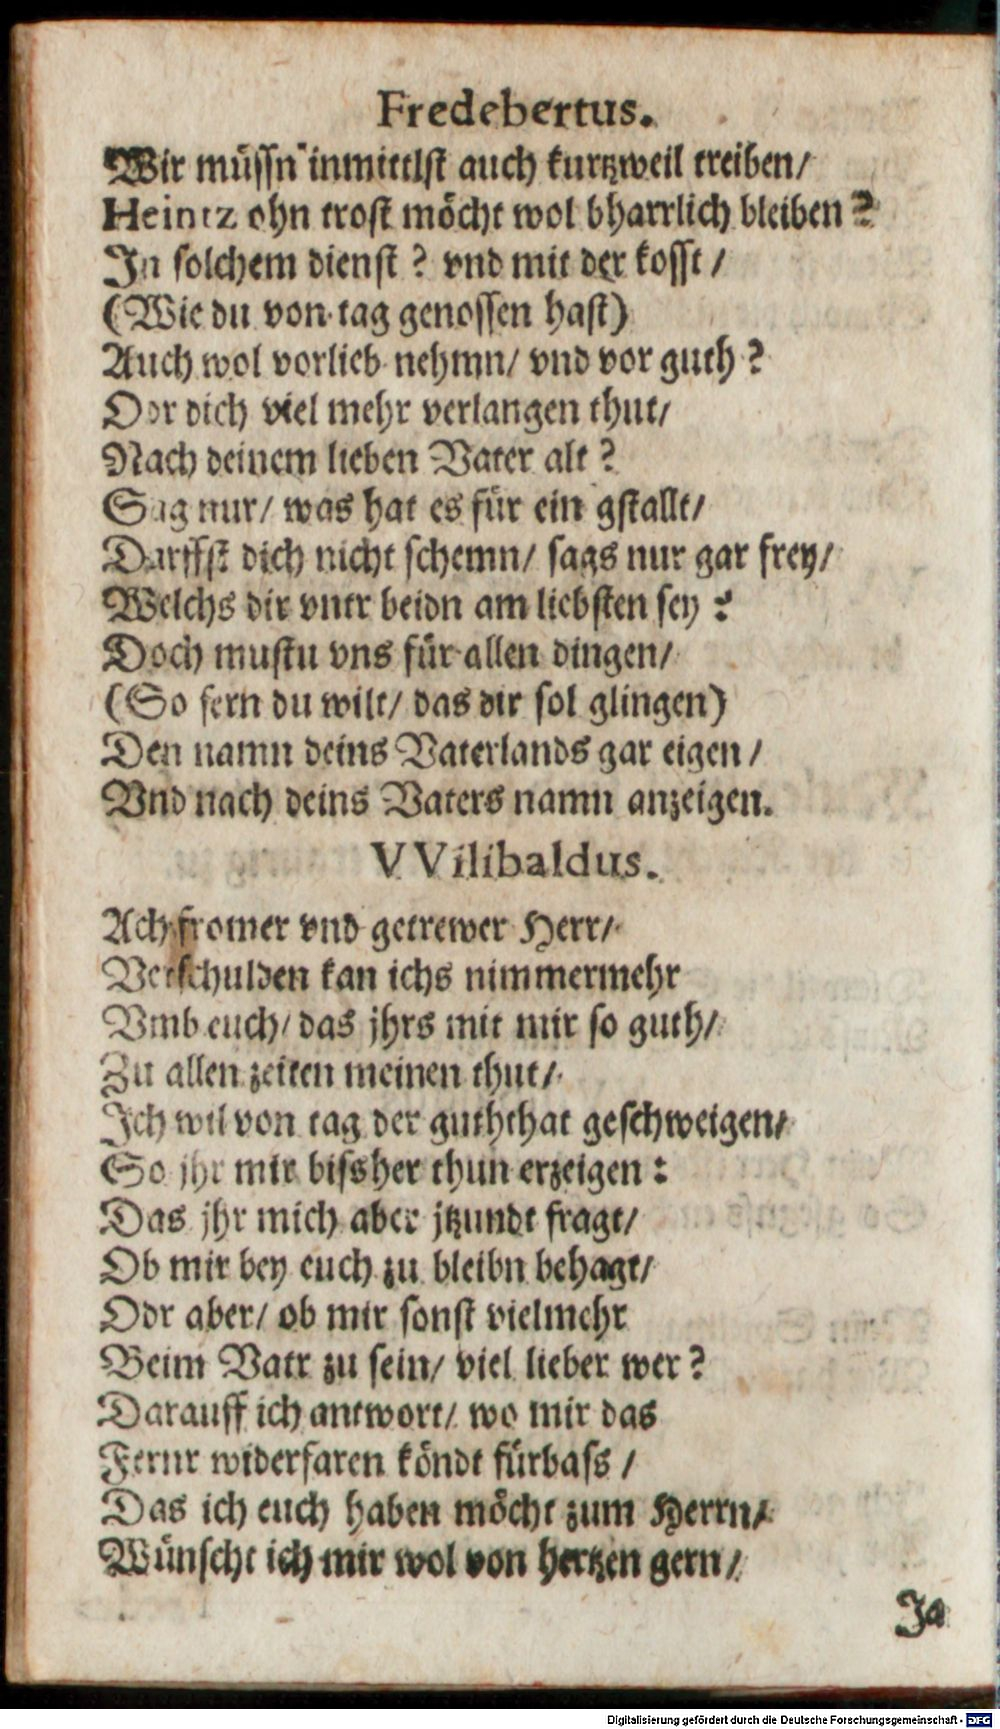 Fredebertus.
Wir müssn inmittlst auch kurtzweil treiben/
Heintz ohn trost möcht wol bharrlich bleiben?
In solchem dienst? vnd mit der kosst/
(Wie du von tag genossen hast)
Auch wol vorlieb nehmn/ vnd vor guth?
Odr dich viel mehr verlangen thut/
Nach deinem lieben Vater alt?
Sag nur/ was hat es für ein gstallt/
Darffst dich nicht schemn/ sags nur gar frey/
Welchs dir vntr beidn am liebsten sey?
Doch mustu vns für allen dingen/
(So fern du wilt/ das dir sol glingen)
Den namn deins Vaterlands gar eigen/
Vnd nach deins Vaters namn anzeigen.
VVilibaldus.
Ach fromer vnd getrewer Herr/
Verschulden kan ichs nimmermehr
Vmb euch/ das jhrs mit mir so guth/
Zu allen zeiten meinen thut/
Ich wil von tag der guththat geschweigen/
So jhr mir bissher thun erzeigen:
Das jhr mich aber jtzundt fragt/
Ob mir bey euch zu bleibn behagt/
Odr aber/ ob mir sonst vielmehr
Beim Vatr zu sein/ viel lieber wer?
Darauff ich antwort/ wo mir das
Fernr widerfaren köndt fürbass/
Das ich euch haben möcht zum Herrn/
Wünscht ich mir wol von hertzen gern/
Ja
Digitalisierung gefördert durch die Deutsche Forschungsgemeinschaft - DFG